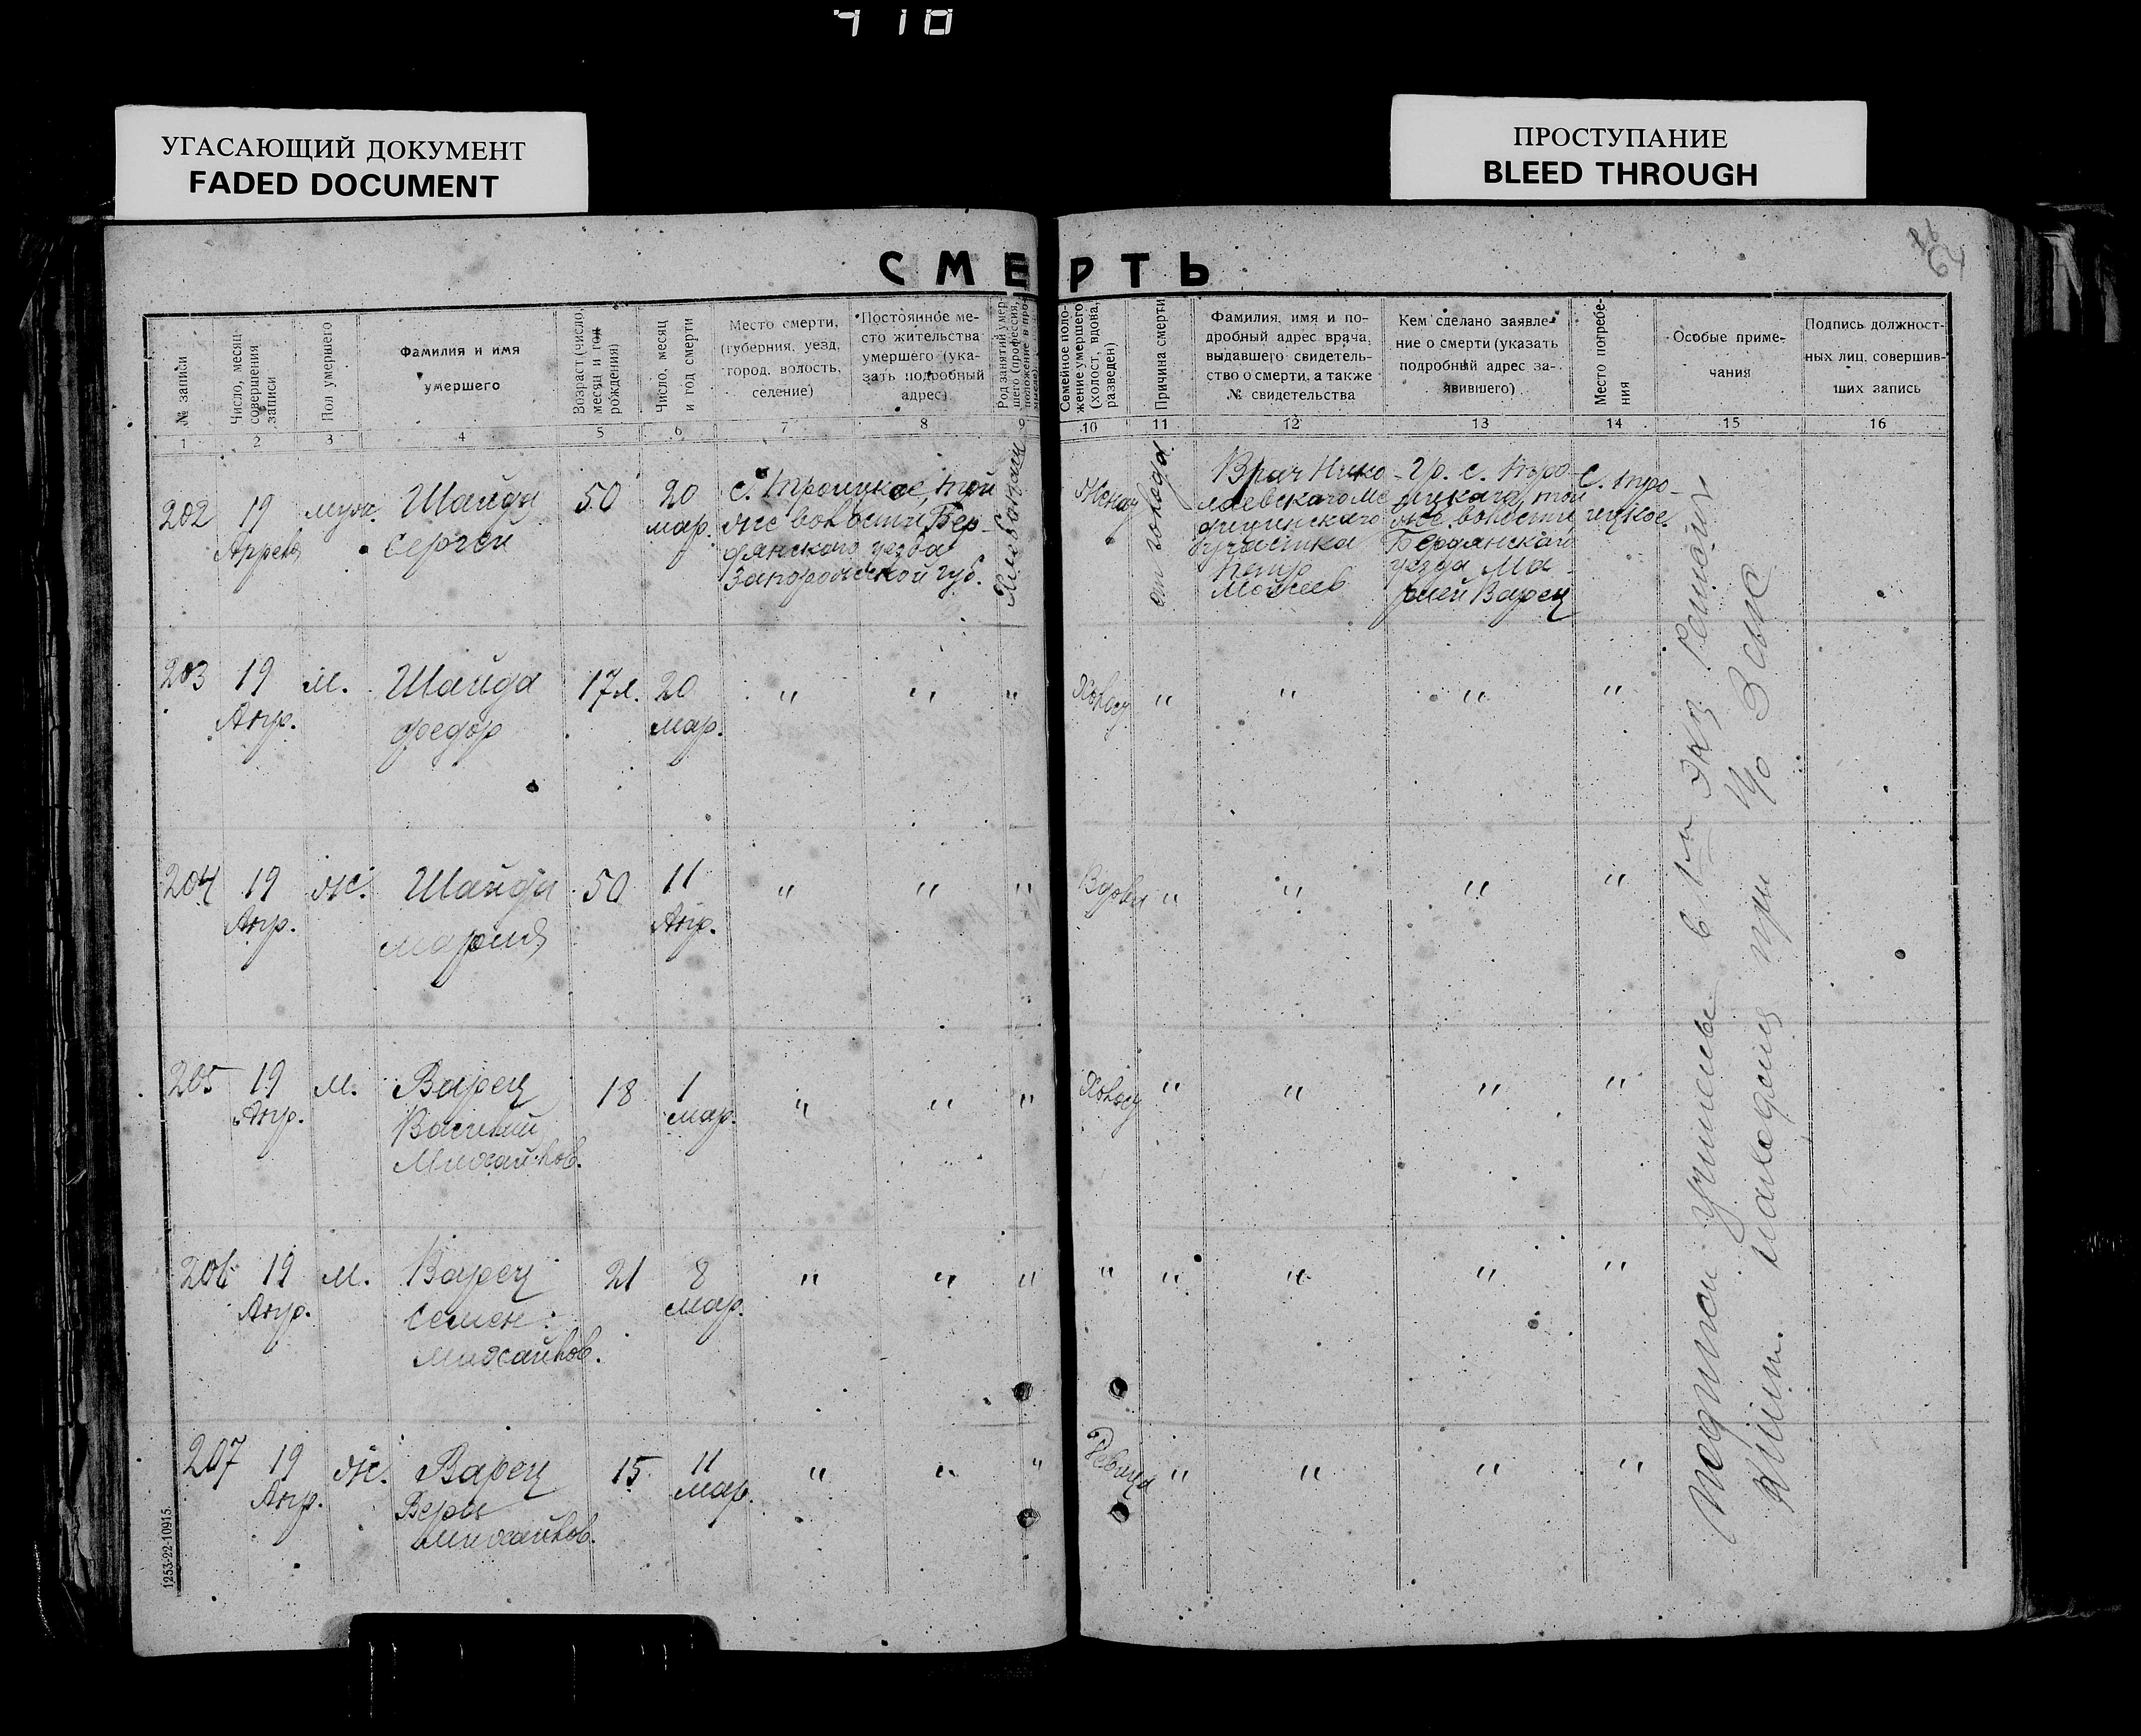 418
УГАСАЮЩИЙ ДОКУМЕНТ
FADED DOCUMENT
ПРОСТУПАНИЕ
BLEED THROUGH
64
СМЕРТЬ
№ записи
Число, месяц
совершения
записи
Пол умершего
Фамилия и имя
умершего
Возраст (число,
месяц и год
рождения)
Число, месяц
и год смерти
Место смерти,
(губерния, уезд,
город, волость,
селение)
Постоянное ме-
сто жительства
умершего (ука-
зать подробный
адрес)
Род занятий умер-
шего (профессия,
положение в про-
Семейное поло-
жение умершего
(холост, вдова,
разведен)
Причина смерти
Фамилия, имя и по-
дробный адрес врача,
выдавшего свидетель-
ство о смерти, а также
№ свидетельства
Кем сделано заявле-
ние о смерти (указать
подробный адрес за-
явившего)
Место погребе-
ния
Особые приме-
чания
Подпись должност-
ных лиц, совершив-
ших запись
1 2 3 4 5 6 7 8 9 10 11 12 13 14 15 16
202
19
Апрель
муж.
Шайда
Сергей
50
20
мар.
с. Троицкое, той
же волости, Бер-
дянского уезда
Запорожской губ.
Хлебопаш
Женат
от голода
Врач Нико-
лаевского ме
дицинского
участка
Петр
Моисеев
Гр. с. Тро-
ицкого, той
же волости
Бердянского
уезда Ма-
рией Варец
С. Тро-
ицкое.
203
19
Апр.
м.
Шайда
Федор
17 л.
20
мар.
" " "
Холост
" " " "
204
19
Апр.
ж.
Шайда
Мария
50
11
Апр.
" " "
Вдова
" " " "
205
19
Апр.
м.
Варец
Василий
Михайлов.
18
1
мар.
" " "
Холост
" " " "
206
19
Апр.
м.
Варец
Семен
Михайлов.
21
8
мар.
" " "
" " " " "
207
19
Апр.
ж.
Варец
Вера
Михайлов.
15
11
мар.
" " "
Девица
" " " "
в 1м экз
книги находящ при
1253-22-10915.